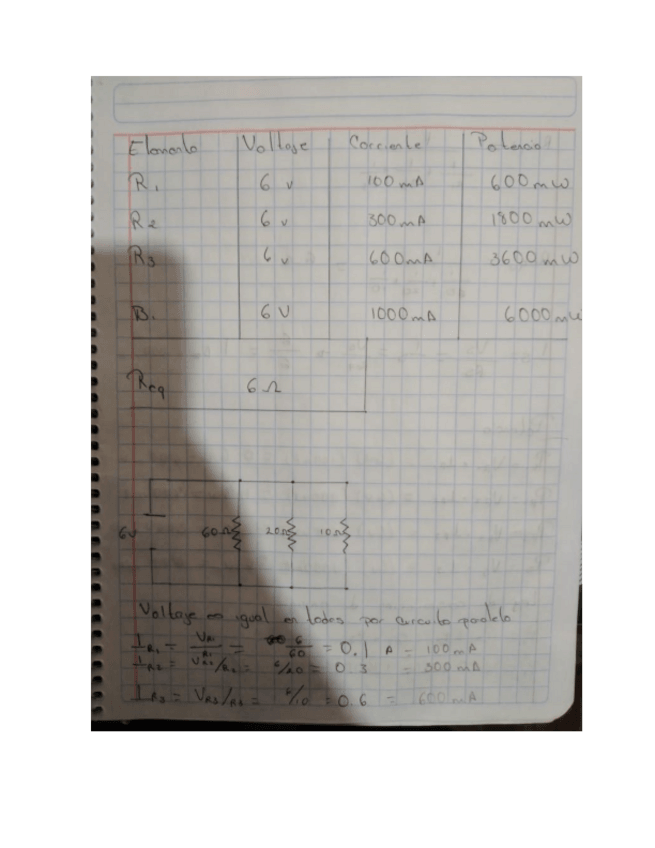 Elemento Voltaje Corriente Potencia
R1 6 v 100 mA 600 mW
R2 6 v 300 mA 1800 mW
R3 6 v 600 mA 3600 mW
B1 6 V 1000 mA 6000 mW
Req 6 Ω
6V 60Ω 20Ω 10Ω
Voltaje es igual en todos por circuito paralelo
IR1 = VR1/R1 = 6/60 = 0.1 A = 100 mA
IR2 = VR2/R2 = 6/20 = 0.3 = 300 mA
IR3 = VR3/R3 = 6/10 = 0.6 = 600 mA